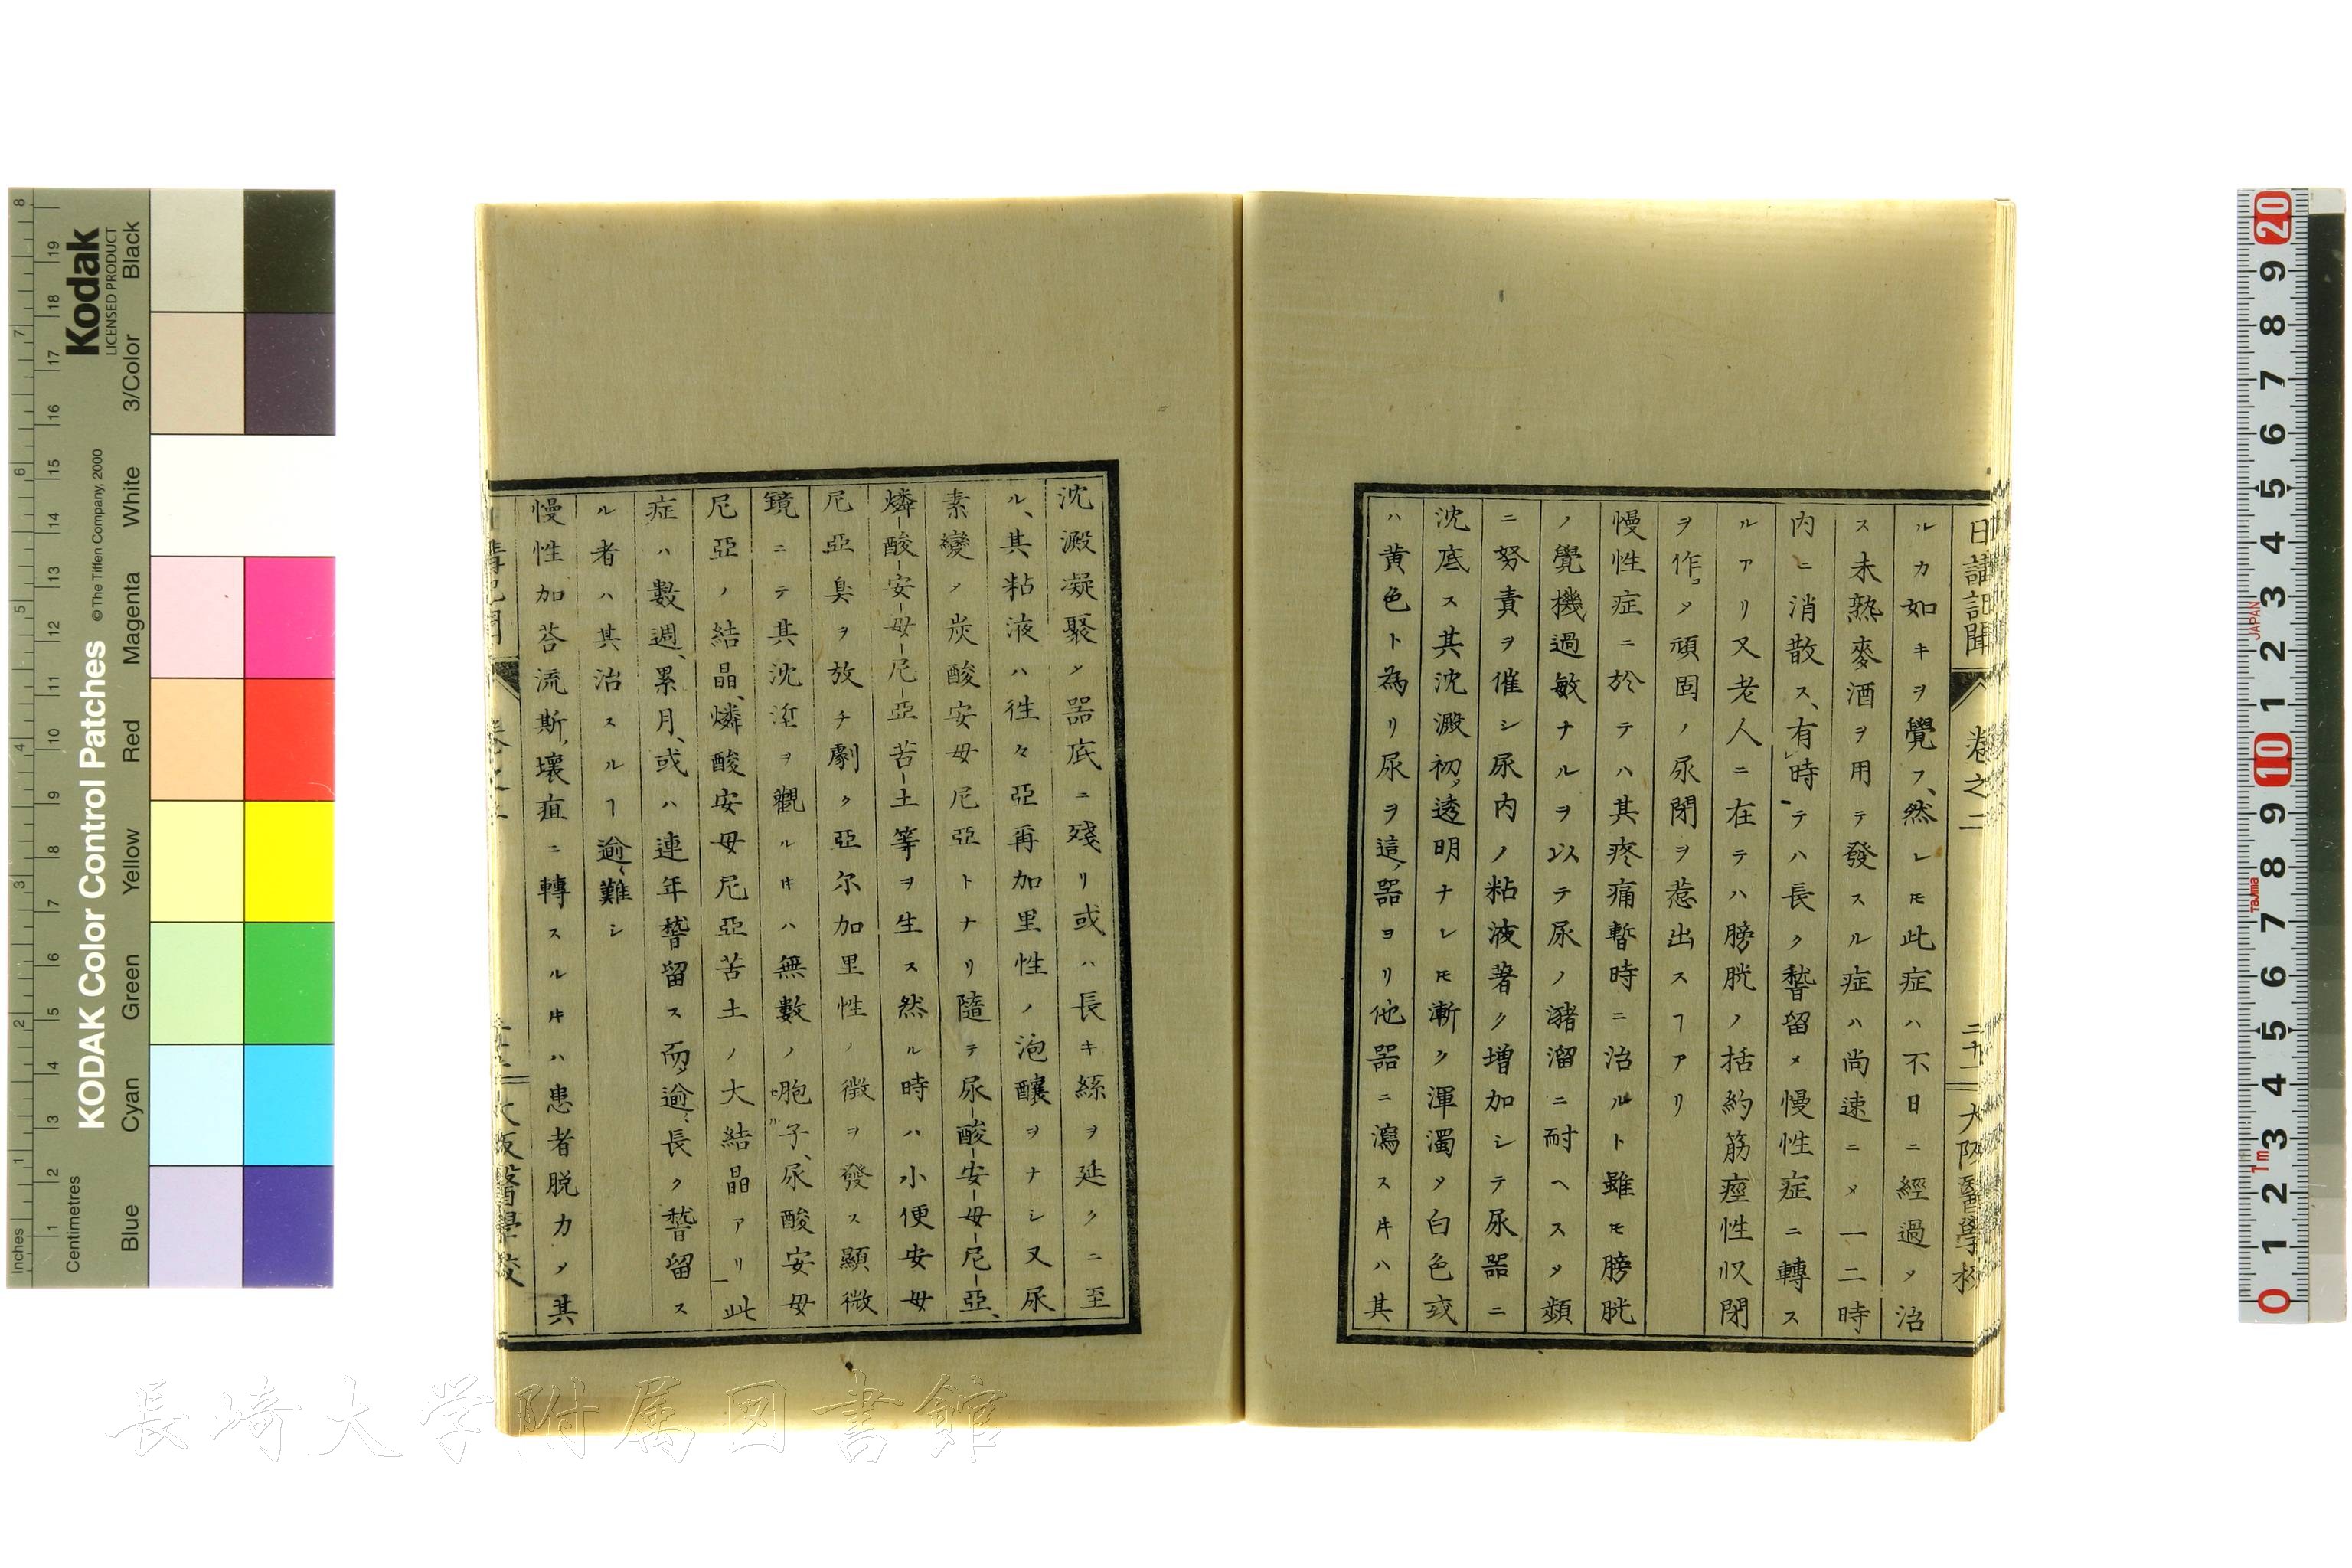 日講記聞 卷之二 二十一 大阪醫學校
ルカ如キヲ覺フ、然レㇳモ此症ハ不日ニ經過メ治
ス未熟麥酒ヲ用テ發スル症ハ尚速ニメ一二時
内ニ消散ス、有時テハ長ク𥡴留メ慢性症ニ轉ス
ルアリ又老人ニ在テハ膀胱ノ括約筋痙性収閉
ヲ作コメ頑固ノ尿閉ヲ惹出スヿアリ
慢性症ニ於テハ其疼痛暫時ニ治ルト雖モ膀胱
ノ覺機過敏ナルヲ以テ尿ノ瀦溜ニ耐ヘスメ頻
ニ努責ヲ催シ尿内ノ粘液著ク増加シテ尿器ニ
沈底ス其沈澱初メ透明ナレㇳモ漸ク渾濁メ白色或
ハ黄色ト為リ尿ヲ這ノ器ヨリ他器ニ瀉スㇳキハ其
沈澱凝聚メ器底ニ殘リ或ハ長キ絲ヲ延クニ至
ル、其粘液ハ徃々亞再加里性ノ泡釀ヲナシ又尿
素變メ炭酸安母尼亞トナリ隨テ尿酸安母尼亞、
燐酸安母尼亞苦土等ヲ生ス然ル時ハ小便安母
尼亞臭ヲ放チ劇ク亞尔加里性ノ徴ヲ發ス顯微
鏡ニテ其沈渣ヲ觀ルㇳキハ無數ノ胞子、尿酸安母
尼亞ノ結晶、燐酸安母尼亞苦土ノ大結晶アリ此
症ハ數週、累月、或ハ連年𥡴留ス而メ逾長ク𥡴留ス
ル者ハ其治スルヿ逾難シ
慢性加荅流斯、壞疽ニ轉スルㇳキハ患者脱力メ其
大阪醫學校
Kodak
LICENSED PRODUCT
KODAK Color Control Patches
©The Tiffen Company, 2000
Inches
Centimetres
Blue Cyan Green Yellow Red Magenta White 3/Color Black
JAPAN
Tajima
1m
長崎大学附属図書館